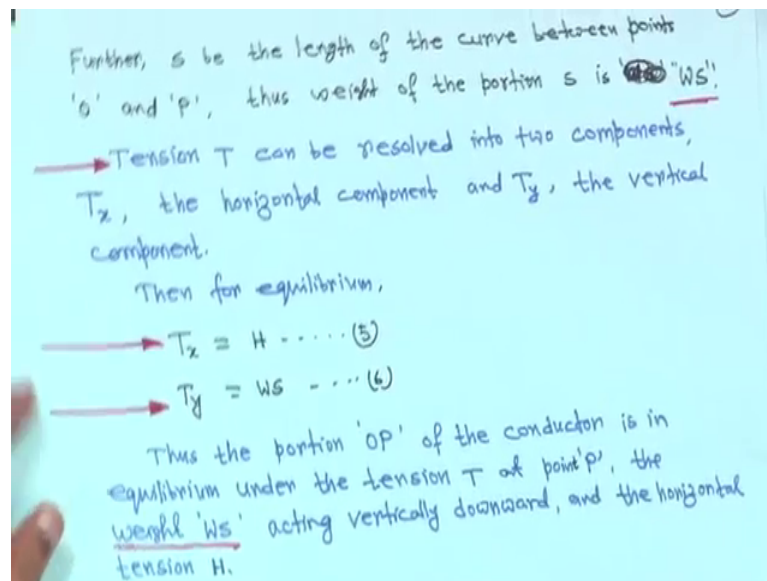 Further, s be the length of the curve between points
'O' and 'P', thus weight of the portion s is "WS".
Tension T can be resolved into two components,
Tx, the horizontal component and Ty, the vertical
component.
Then for equilibrium,
Tx = H ...... (5)
Ty = WS - ... (6)
Thus the portion 'OP' of the conductor is in
equilibrium under the tension T at point 'P', the
weight 'WS' acting vertically downward, and the horizontal
tension H.